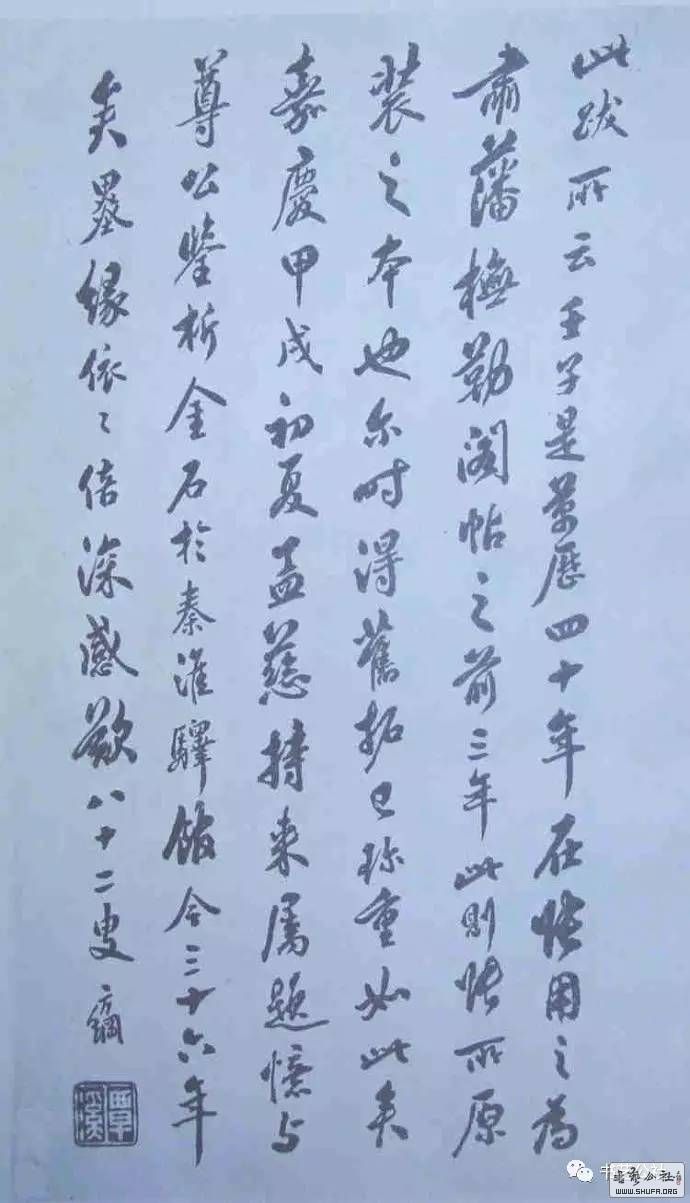 此跋所云壬子是萬歷四十年在張用之為
肅藩橅勒閣帖之前三年此則張所原
裝之本也尔时得舊拓已珎重如此矣
嘉慶甲戌初夏孟慈持来屬題憶与
尊公鑒析金石於秦淮驛館今三十六年
矣墨緣依々倍深感歎八十二叟方綱
覃溪
WWW.SHUFA.ORG